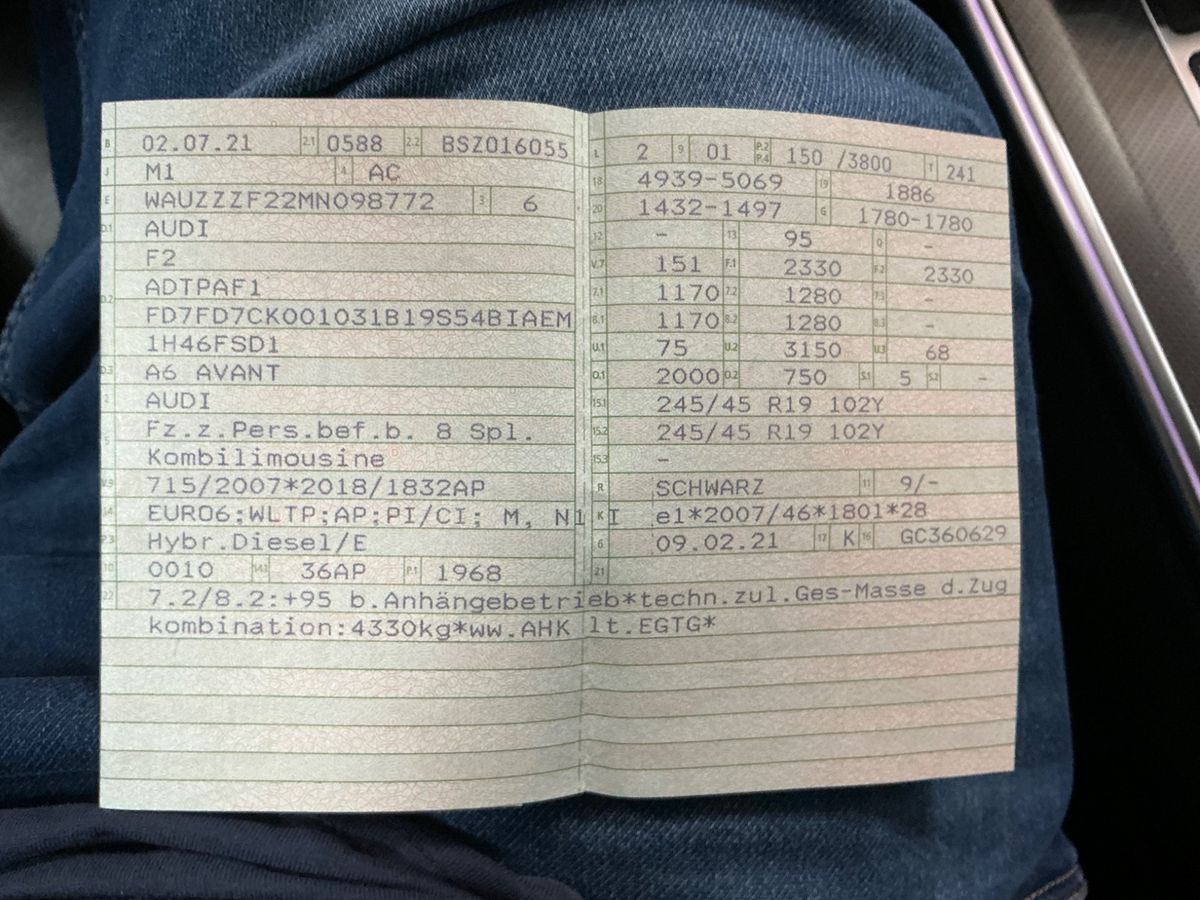 B 02.07.21 2.1 0588 2.2 BSZ016055
J M1 4 AC
E WAUZZZF22MN098772 3 6
D.1 AUDI
F2
D.2 ADTPAF1
FD7FD7CK001031B19S54BIAEM
1H46FSD1
D.3 A6 AVANT
2 AUDI
5 Fz.z.Pers.bef.b. 8 Spl.
Kombilimousine
V.9 715/2007*2018/1832AP
14 EURO6;WLTP;AP;PI/CI; M, N1 I
P.3 Hybr.Diesel/E
10 0010 14.1 36AP P.1 1968
L 2 9 01 P.2 P.4 150 /3800 T 241
18 4939-5069 19 1886
20 1432-1497 G 1780-1780
12 - 13 95 Q -
V.7 151 F.1 2330 F.2 2330
7.1 1170 7.2 1280 7.3 -
8.1 1170 8.2 1280 8.3 -
U.1 75 U.2 3150 U.3 68
O.1 2000 O.2 750 S.1 5 S.2 -
15.1 245/45 R19 102Y
15.2 245/45 R19 102Y
15.3 -
R SCHWARZ 11 9/-
K e1*2007/46*1801*28
6 09.02.21 17 K 16 GC360629
21
22 7.2/8.2:+95 b.Anhängebetrieb*techn.zul.Ges-Masse d.Zug
kombination:4330kg*ww.AHK lt.EGTG*